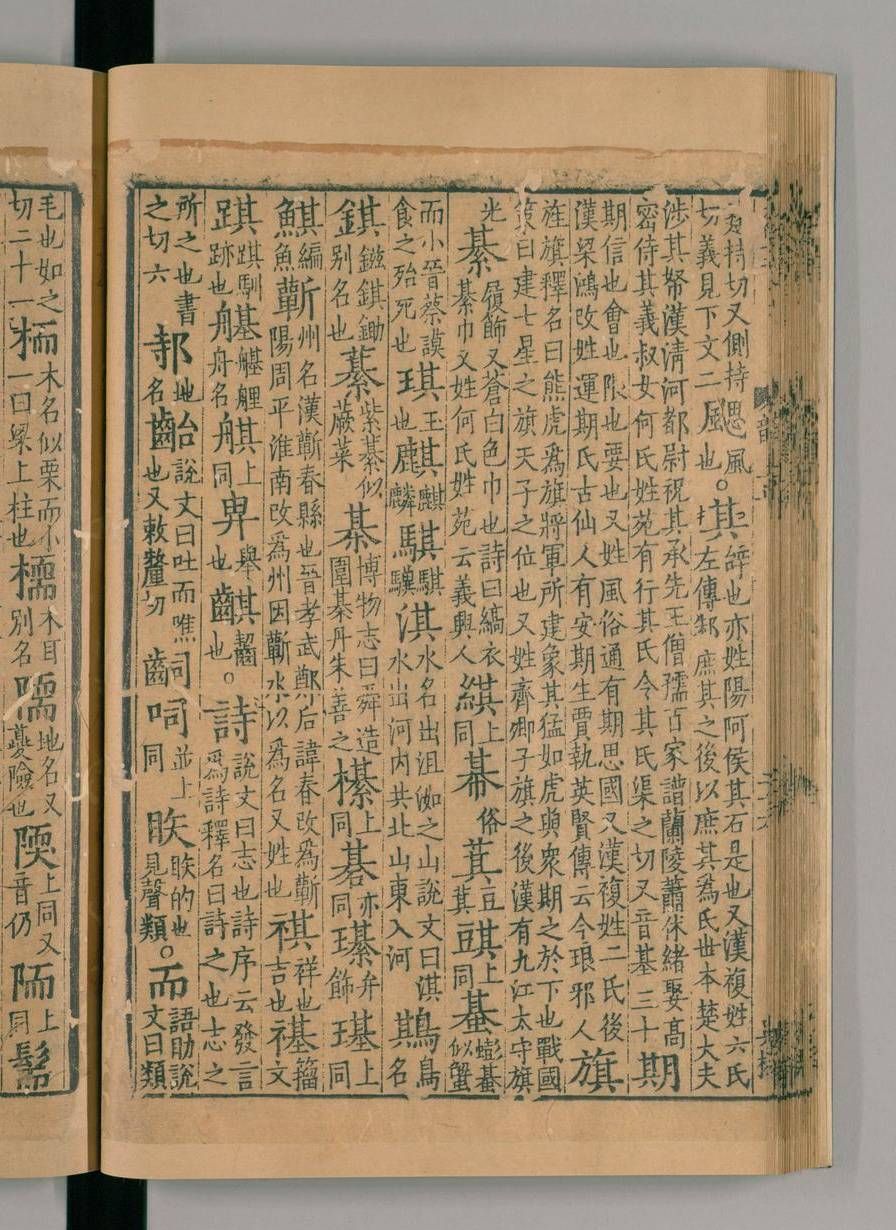 持切又側持切義見下文二風也。其辝也亦姓陽阿侯其石是也又漢複姓六氏左傳邾庶其之後以庶其為氏世本楚大夫
涉其帑漢清河都尉祝其承先王僧孺百家譜蘭陵蕭休緒娶高密侍其義叔女何氏姓苑有行其氏今其氏渠之切又音基三十期
期信也會也限也要也又姓風俗通有期思國又漢複姓二氏後漢梁鴻改姓運期氏古仙人有安期生賈執英賢傳云今琅邪人旗
旌旗釋名曰熊虎為旗將軍所建象其猛如虎與衆期之於下也戰國策曰建七星之旗天子之位也又姓齊卿子旗之後漢有九江太守旗
光綦履飾又蒼白色巾也詩曰縞衣綦巾又姓何氏姓苑云義興人綨上同帺俗萁豆萁上同蜝蟛蜝似蟹
而小晉蔡謨食之殆死也琪玉也麒麒麟騏騏驥淇水名出沮洳之山說文曰淇水出河內共北山東入河鶀鳥名
錤鎡錤鋤別名也藄紫藄似蕨菜棊博物志曰舜造圍棊丹朱善之櫀上同碁亦同璂弁飾上同
鯕魚蘄州名漢蘄春縣也晉孝武鄭后諱春改為蘄陽周平淮南改為州因蘄水以為名又姓也祺祥也吉也禥籀文
踑跡也舟名上同舉也也。詩說文曰志也詩序云發言為詩釋名曰詩之也志之
所之也書之切六邿地名齝說文曰吐而噍也又敕釐切呞並上同眣的也見聲類。而語助說文曰類
毛也如之切二十一栭木名似栗而小一曰梁上柱也檽木耳別名陾地名又險也陑上同又音仍上同髵